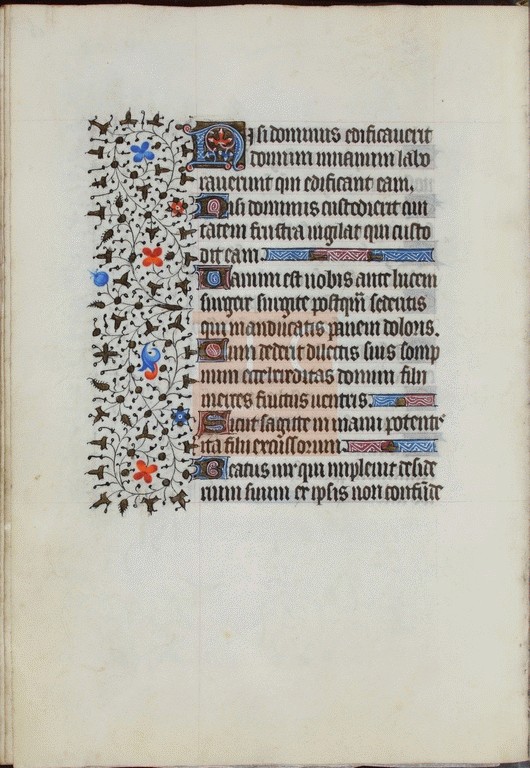 Nisi dominus edificauerit
domum in uanum labo
rauerunt qui edificant eam.
Nisi dominus custodierit ciui
tatem frustra uigilat qui custo
dit eam.
Uanum est uobis ante lucem
surgere surgite postqm̄ sederitis
qui manducatis panem doloris.
Cum dederit dilectis suis somp
num ecce hereditas domini filii
merces fructus uentris.
Sicut sagitte in manu potentis
ita filii excussorum.
Beatus uir qui impleuit deside
rium suum ex ipsis non confūde